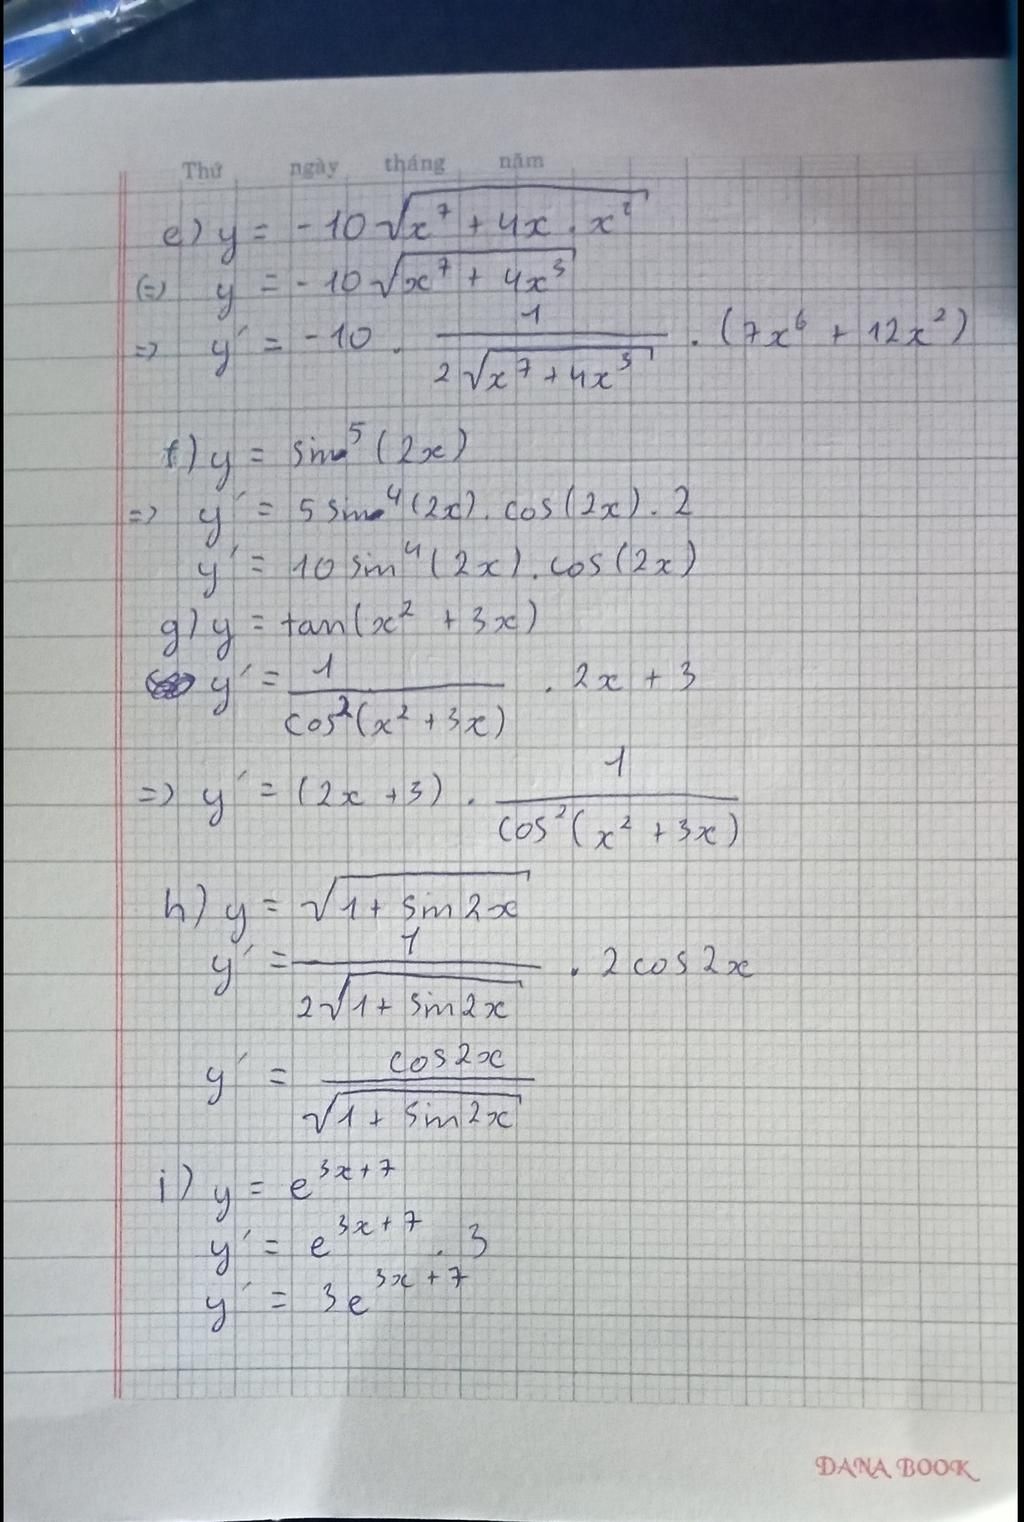 Thứ ngày tháng năm
e) y = -10√(x⁷ + 4x . x²)
(=) y = -10√(x⁷ + 4x³)
=> y' = -10 . 1/(2√(x⁷ + 4x³)) . (7x⁶ + 12x²)
f) y = sin⁵(2x)
=> y' = 5 sin⁴(2x). cos(2x). 2
y' = 10 sin⁴(2x). cos(2x)
g) y = tan(x² + 3x)
y' = 1/(cos²(x² + 3x)) . 2x + 3
=> y' = (2x + 3) . 1/(cos²(x² + 3x))
h) y = √(1 + sin2x)
y' = 1/(2√(1 + sin2x)) . 2cos2x
y' = cos2x/√(1 + sin2x)
i) y = e^(3x+7)
y' = e^(3x+7) . 3
y' = 3e^(3x+7)
DANA BOOK